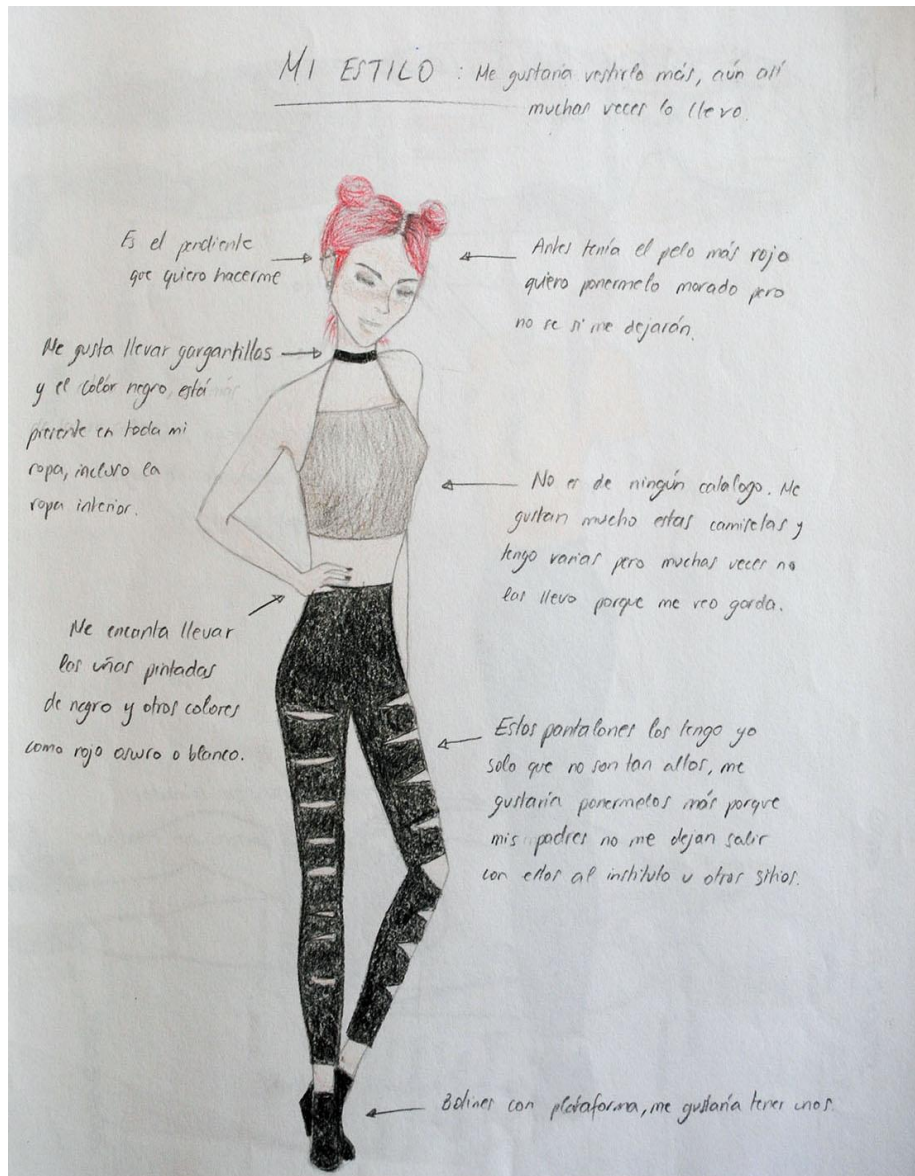 MI ESTILO : Me gustaria vestirlo más, aún así
muchas veces lo llevo.
Es el pendiente
que quiero hacerme
Antes tenía el pelo más rojo
quiero ponermelo morado pero
no se si me dejarán.
Me gusta llevar gargantillas
y el color negro, está
presente en toda mi
ropa, incluso la
ropa interior.
No es de ningún catalogo. Me
gustan mucho estas camisetas y
tengo varias pero muchas veces no
las llevo porque me veo gorda.
Me encanta llevar
las uñas pintadas
de negro y otros colores
como rojo oscuro o blanco.
Estos pantalones los tengo yo
solo que no son tan altos, me
gustaría ponermelos más porque
mis padres no me dejan salir
con estos al instituto u otros sitios.
Botines con plataforma, me gustaría tener unos.